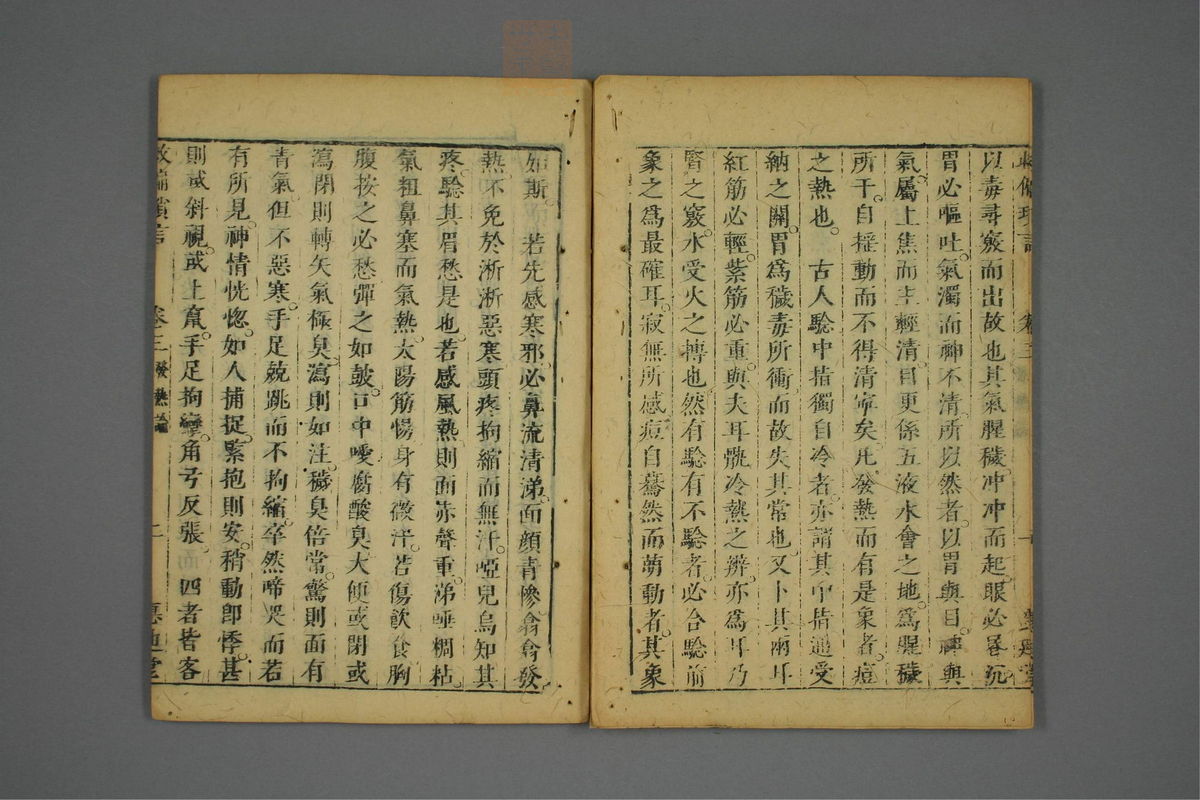 以毒尋竅而出故也其氣腥穢冲冲而起眼必昏沉
胃必嘔吐氣濁而神不清所以然者以胃與目神與
氣屬上焦而主輕清目更係五液水會之地爲腥穢
所干自搖動而不得清寧矣凡發熱而有是象者痘
之熱也 古人驗中指獨自冷者亦謂其中指通受
納之關胃爲穢毒所衝而故失其常也又卜其兩耳
紅筋必輕紫筋必重與夫耳骩冷熱之辨亦爲耳乃
腎之竅水受火之轉也然有驗有不驗者必合驗前
象之爲最確耳寂無所感痘自驀然而萌動者其象
如斯 若先感寒邪必鼻流清涕面顔青慘翕翕發
熱不免於淅淅惡寒頭疼拘縮而無汗啞兒烏知其
疼驗其眉愁是也若感風熱則面赤聲重涕唾稠粘
氣粗鼻塞而氣熱太陽筋惕身有微汗若傷飲食胸
腹按之必愁彈之如皷口中噯腐酸臭大便或閉或
瀉閉則轉矢氣極臭瀉則如注穢臭倍常驚則面有
青氣但不惡寒手足兢跳而不拘縮卒然啼哭而若
有所見神情恍惚如人捕捉緊抱則安稍動卽悸甚
則或斜視或上竄手足拘攣角弓反張 四者皆客
救偏瑣言 卷三 發熱論 二 惠迪堂